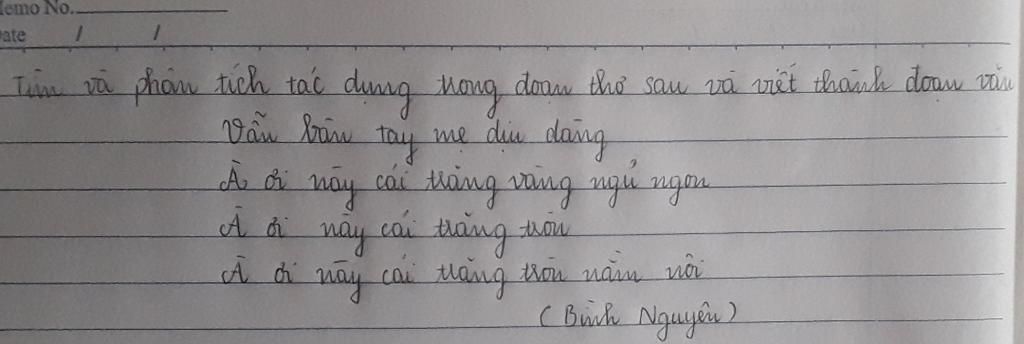 Memo No.
Date / /
Tìm và phân tích tác dụng trong đoạn thơ sau và viết thành đoạn văn
Vẫn bàn tay mẹ dịu dàng
À ơi này cái trăng vàng ngủ ngon
À ơi này cái trăng tròn
À ơi này cái trăng tròn nằm nôi
(Bình Nguyên)